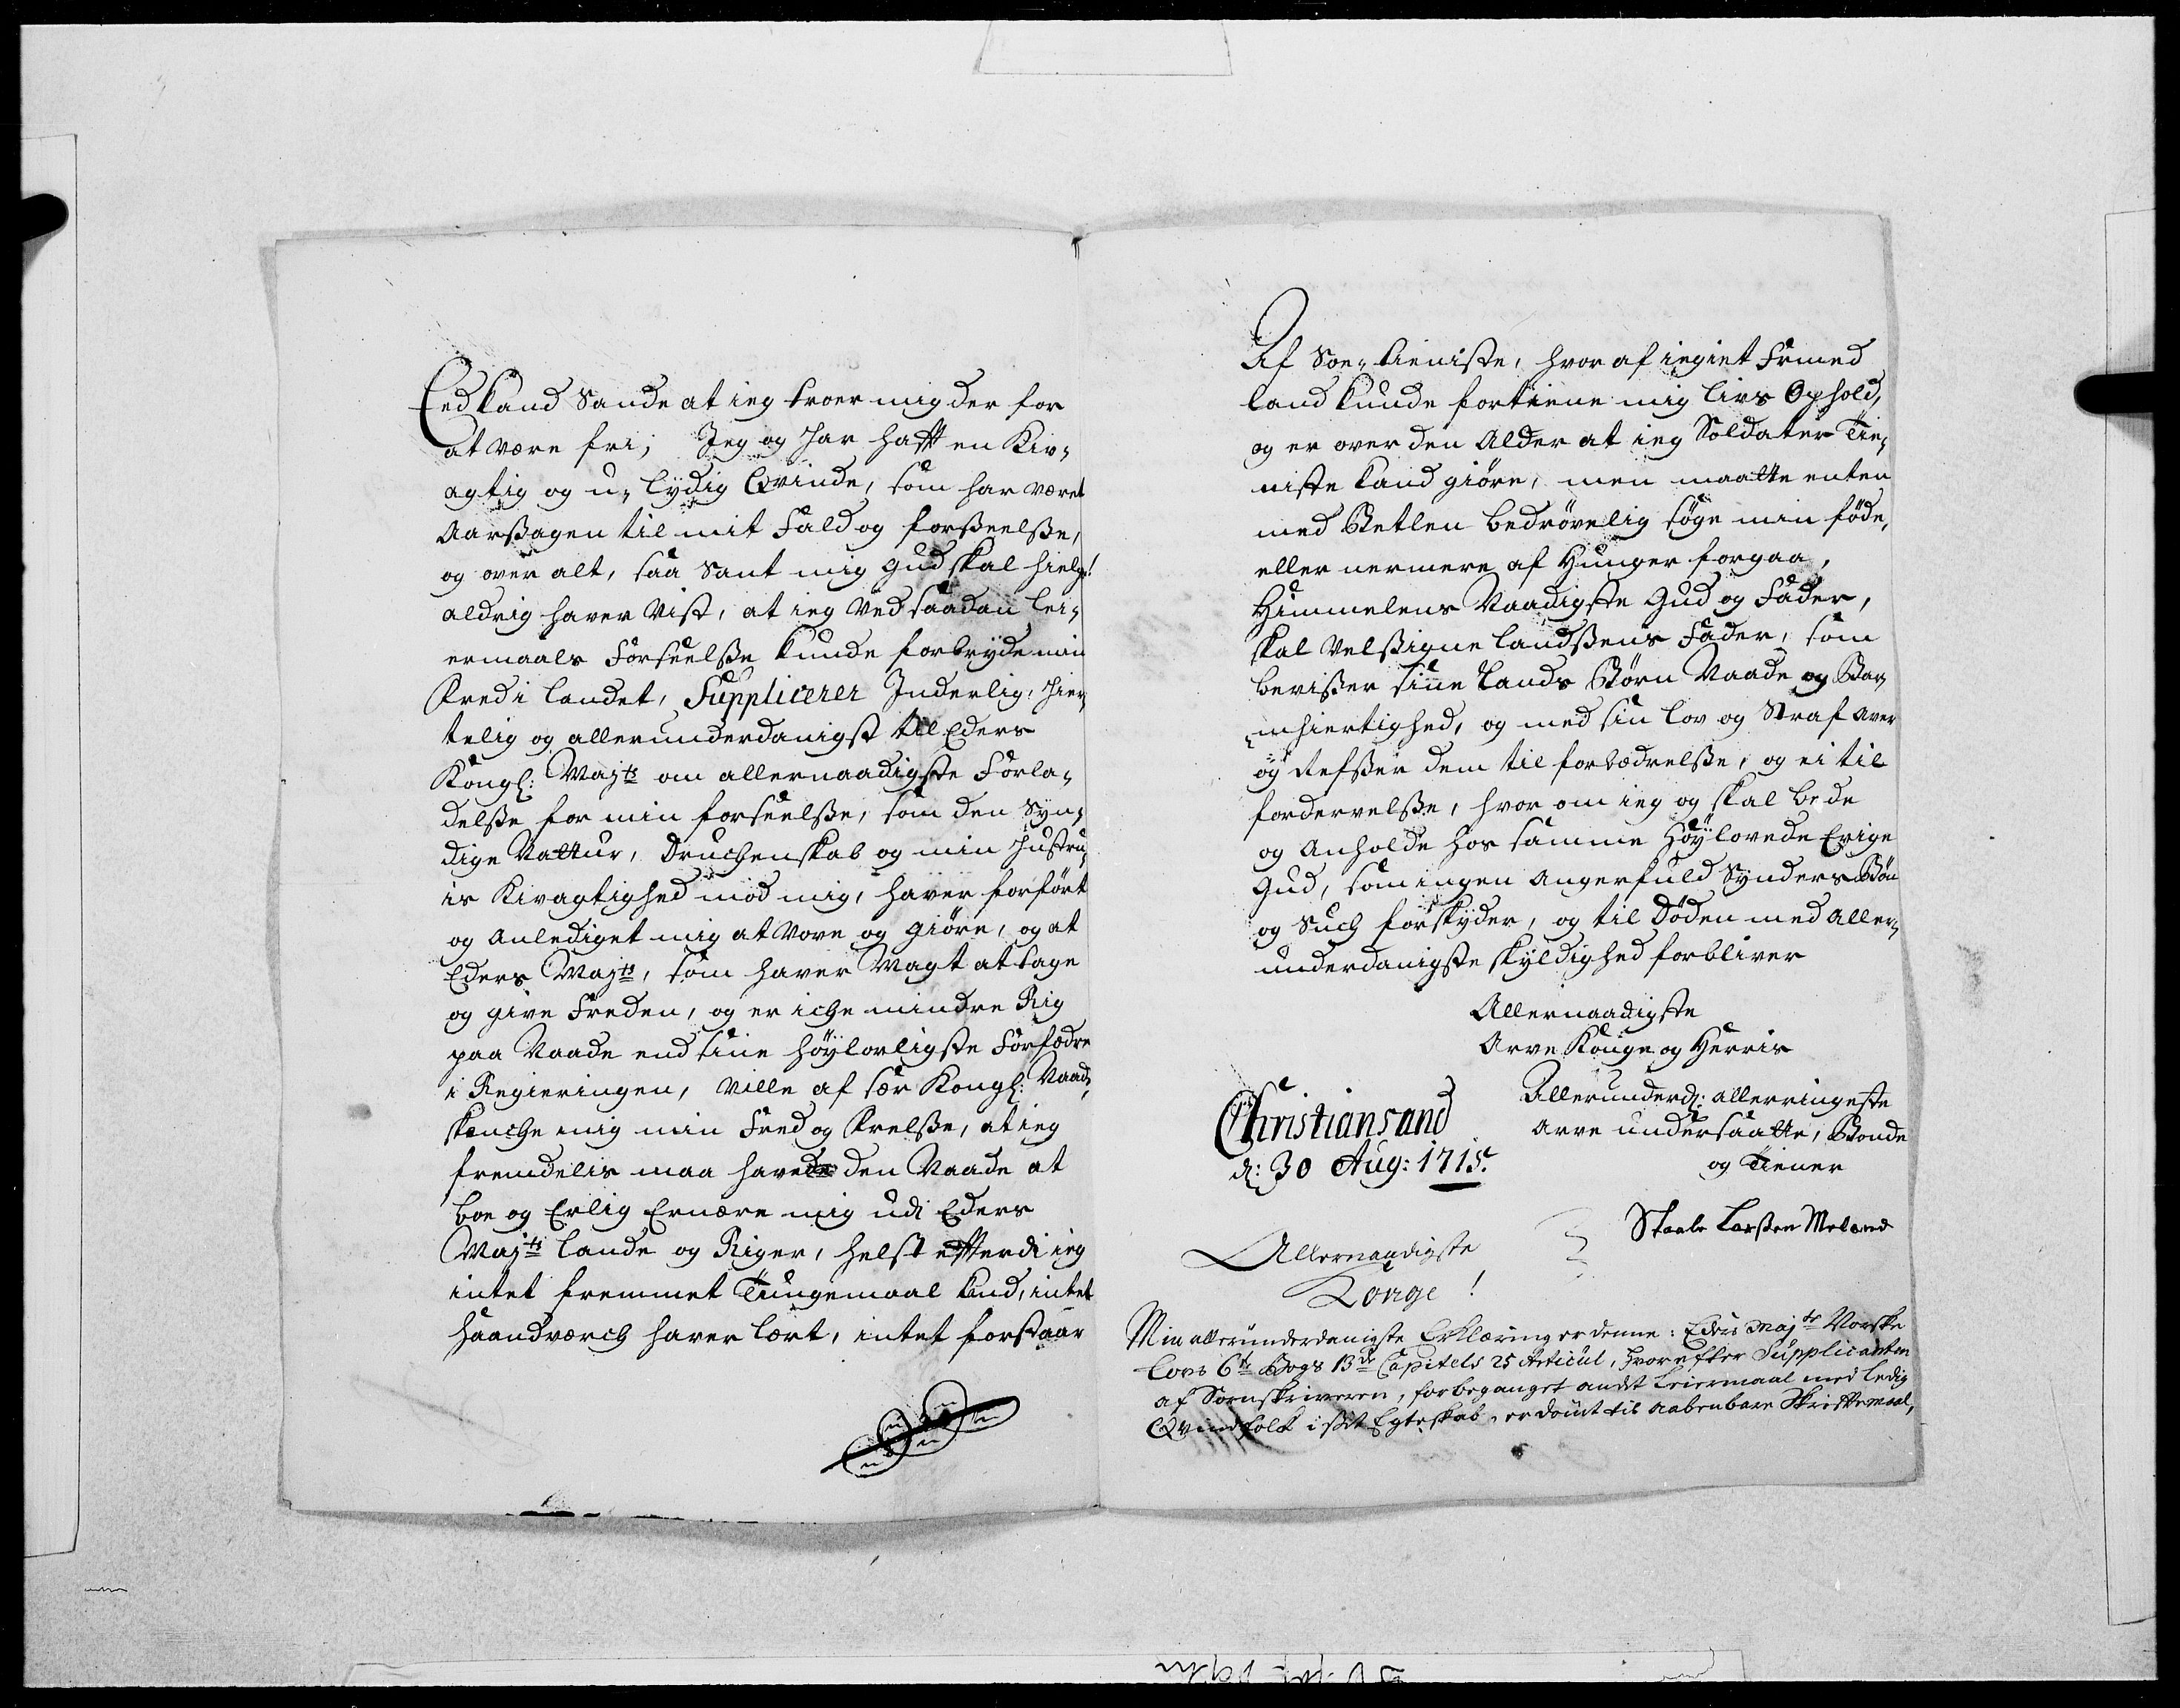 Eed kand Sande at ieg troer mig der for
at være fri; Jeg og har hafft en Kiv¬
agtig og u¬lydig Qvinde, som har været
Aarßagen til mit Fald og forßeelße,
og over alt, saa Sant mig Gud skal hielpe!
aldrig haver Vist, at ieg ved saadan Lei¬
ermaals Forseelße kunde forbryde min
Fred i Landet, Supplicerer Inderlig, hier¬
telig og allerunderdanigst til Eders
Kongl: Majts om allernaadigste Forla¬
delße for min forseelße, som den Syn¬
dige Nattur, Druchenskab og min Hustru¬
is Kivagtighed mod mig, haver forført
og Anlediget mig at Vove og giøre, og at
Eders Majts, som haver Magt at tage
og give Freden, og er iche mindre Rig
paa Naade end sine høylovligste Forfædre
i Regieringen, ville af sær Kongl: Naad¬
skenche mig min Fred og Frelße, at ieg
fremdelis maa have den Naade at
boe og Erlig Ernære mig udi Eders
Majts Lande og Riger, helst efterdi ieg
intet fremmet Tungemaal kand, intet
Haandværch haver lært, intet forstaar
Af Søe¬tieniste, hvor af ieg i et Frmed
land kunde fortiene mig livs Ophold,
og er over den Alder at ieg Soldater Tie¬
niste kand giøre, men maatte enten
med Betlen bedrøvelig søge min føde,
eller nermere af Hunger forgaa,
Himmelens Naadigste Gud og Fader,
skal Velßigne landßens Fader, som
bevißer sine Lands Børn Naade og Bar¬
mhiertighed, og med sin lov og Straf aver
og Refßer dem til forbædrelße, og ei til
fordervelße, hvor om ieg og skal bede
og Anholde hos samme Høylovede Evige
Gud, som ingen Angerfuld Synders Bøn
og Such forskyder, og til Døden med Aller¬
underdanigste skyldighed forbliver
Allernaadigste
Arve Konge og Herris
Allerunderd: allerringeste
Arve undersaatte, Bonde
og Tiener
Christiansand
d: 30 Aug: 1715.
Staale Larßen Meland
Allernaadigste
Konge!
Min allerunderdanigste Erklæring er denne: Eders Majts Norske
Lovs 6te Bogs 13de Capitels 25 Articul, hvorefter Supplicanten
af Sorenskriveren, for beganget andet Leiermaal med ledig
Qvindfolk i sit Egteskab, er dømt til aabenbare Skriftemaal,